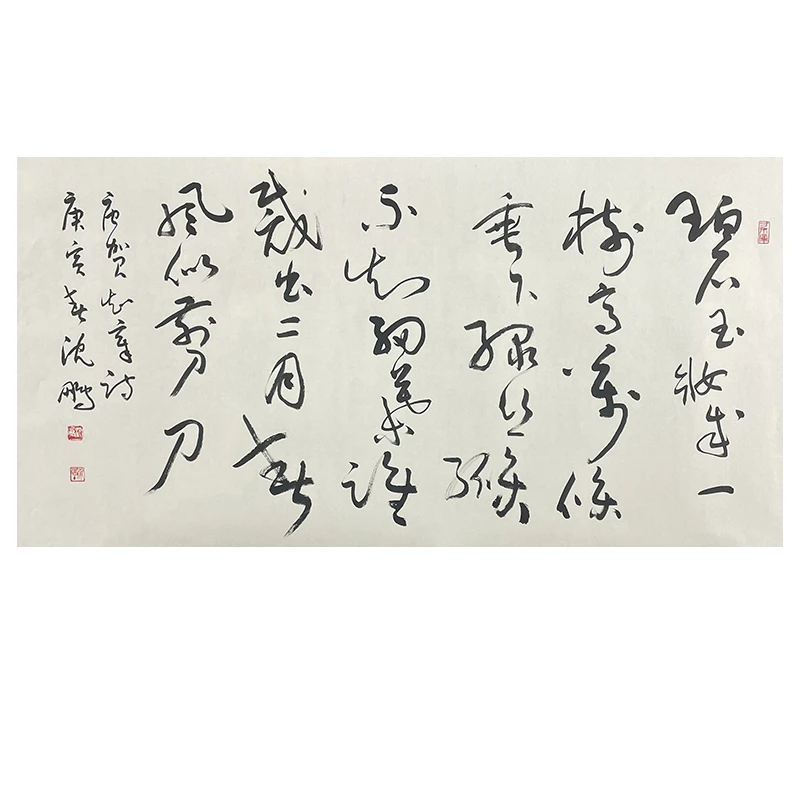 碧玉妝成一
樹高萬條
垂下綠絲縧
不知細葉誰
裁出二月春
風似剪刀
唐賀知章詩
庚寅春沈鵬